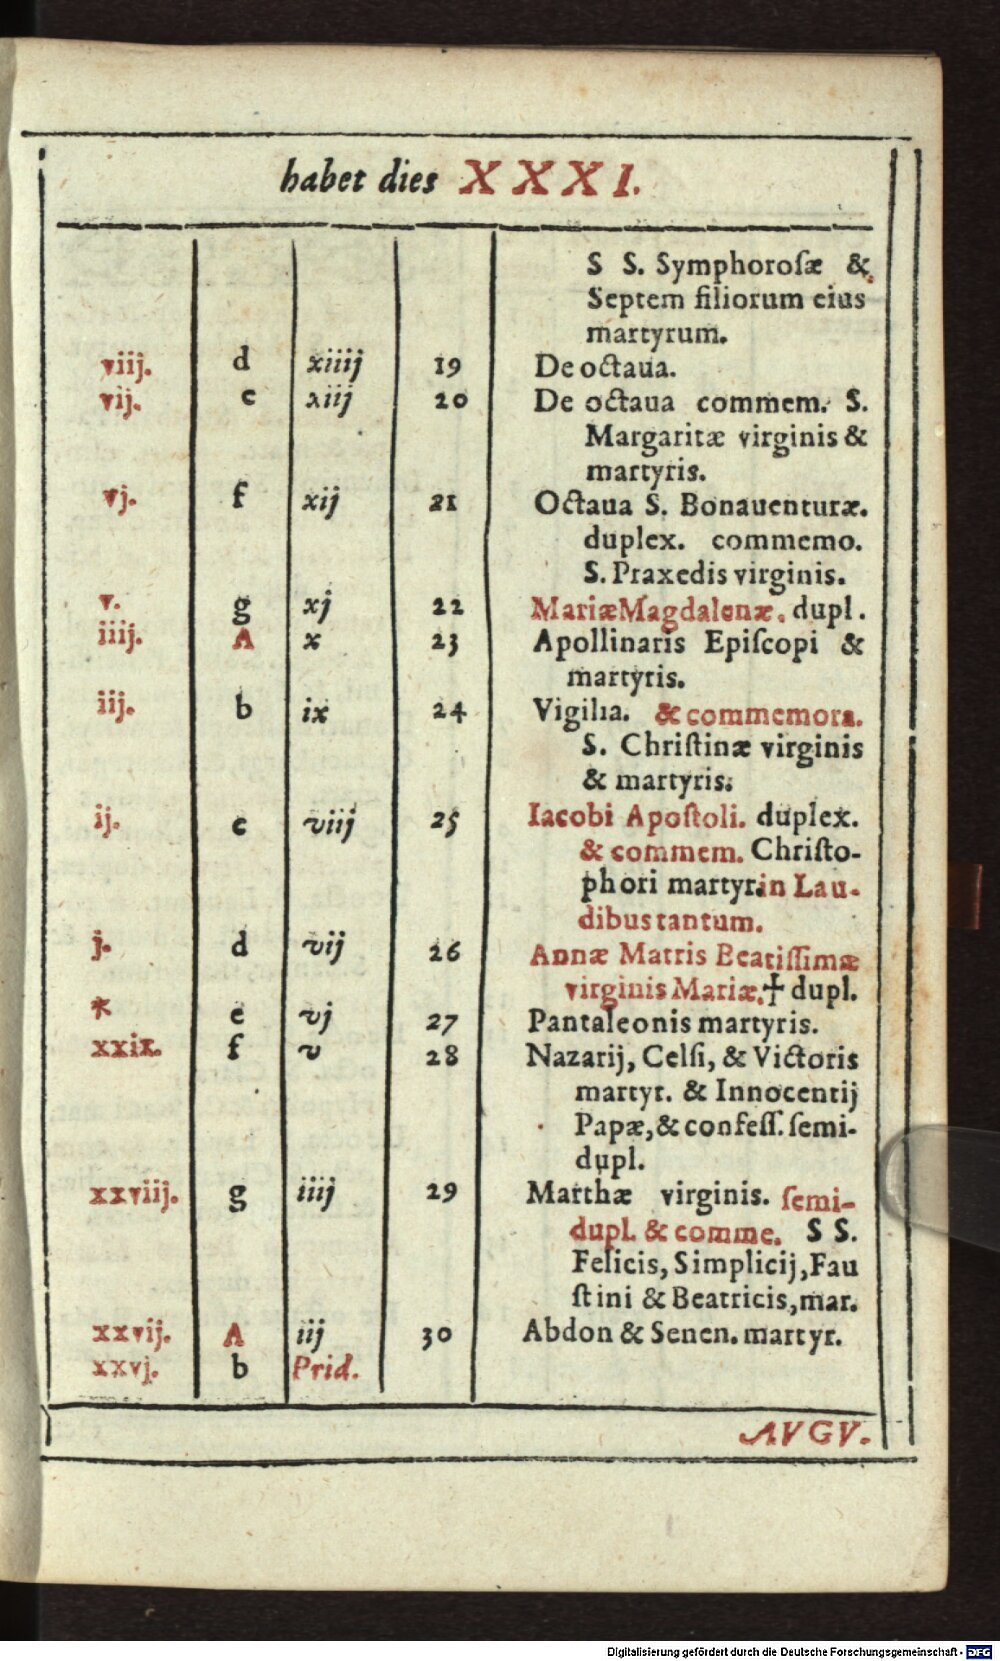 habet dies XXXI.
S S. Symphorosæ &
Septem filiorum eius
martyrum.
viij. d xiiij 19 De octaua.
vij. e xiij 20 De octaua commem. S.
Margaritæ virginis &
martyris.
vj. f xij 21 Octaua S. Bonauenturæ.
duplex. commemo.
S. Praxedis virginis.
v. g xj 22 Mariæ Magdalenæ. dupl.
iiij. A x 23 Apollinaris Episcopi &
martyris.
iij. b ix 24 Vigilia. & commemora.
S. Christinæ virginis
& martyris.
ij. c viij 25 Iacobi Apostoli. duplex.
& commem. Christo-
phori martyr. in Lau-
dibus tantum.
j. d vij 26 Annæ Matris Beatissimæ
virginis Mariæ. ✝ dupl.
* e vj 27 Pantaleonis martyris.
xxix. f v 28 Nazarij, Celsi, & Victoris
martyr. & Innocentij
Papæ, & confess. semi-
dupl.
xxviij. g iiij 29 Marthæ virginis. semi-
dupl. & comme. S S.
Felicis, Simplicij, Fau
stini & Beatricis, mar.
xxvij. A iij 30 Abdon & Senen. martyr.
xxvj. b Prid.
AVGV.
Digitalisierung gefördert durch die Deutsche Forschungsgemeinschaft - DFG